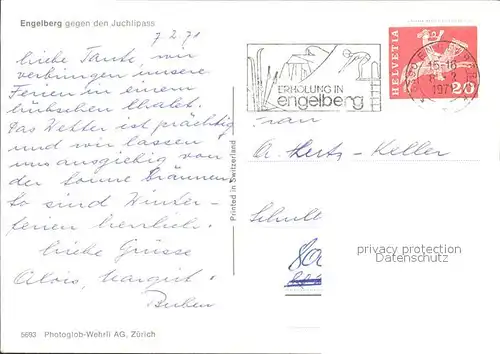 Engelberg gegen den Juchlipass
7.2.71
liebe Tante, wir
verbringen unsere
Ferien in einem
hübschen Chalet.
Das Wetter ist prächtig
und wir lassen
uns ausgiebig von
der Sonne bräunen.
So sind Winter-
ferien herrlich.
liebe Grüsse
Alois, Margrit
Buben
5693 Photoglob-Wehrli AG, Zürich
Printed in Switzerland
ERHOLUNG IN
engelberg
HELVETIA
20
15-18
197
Frau
A. Hertz-Keller
Schul
80
privacy protection
Datenschutz